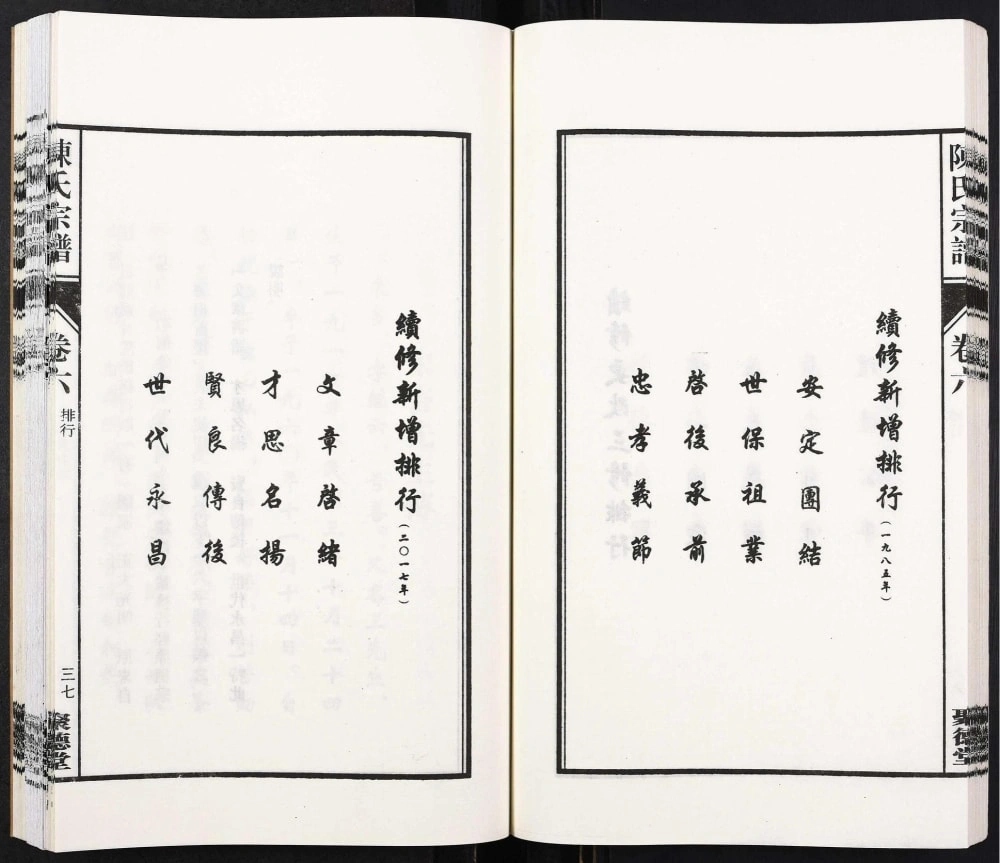 陳氏宗譜
卷六
聚德堂
續修新增排行(一九八五年)
安定團結
世保祖業
啓後承前
忠孝義節
續修新增排行(二〇一七年)
文章啓緒
才思名揚
賢良傳後
世代永昌
陳氏宗譜
卷六
排行
三七
聚德堂